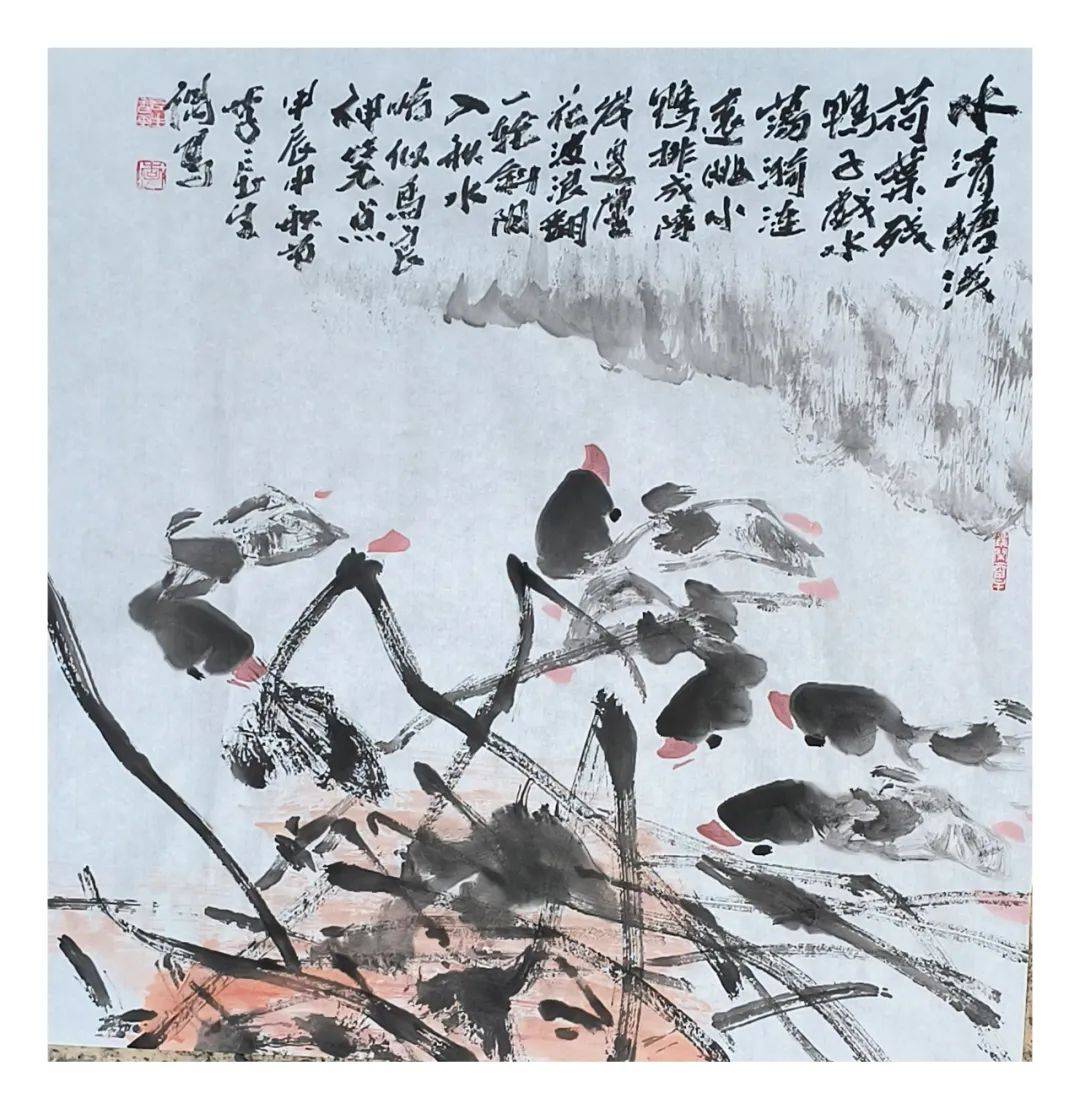 水清塘浅
荷叶残
鸭子戏水
荡漪涟
远眺小
鸭排成阵
岸边芦
花波浪翻
一轮斜阳
入秋水
恰似马良
神笔点
甲辰中秋前
李三
偶写